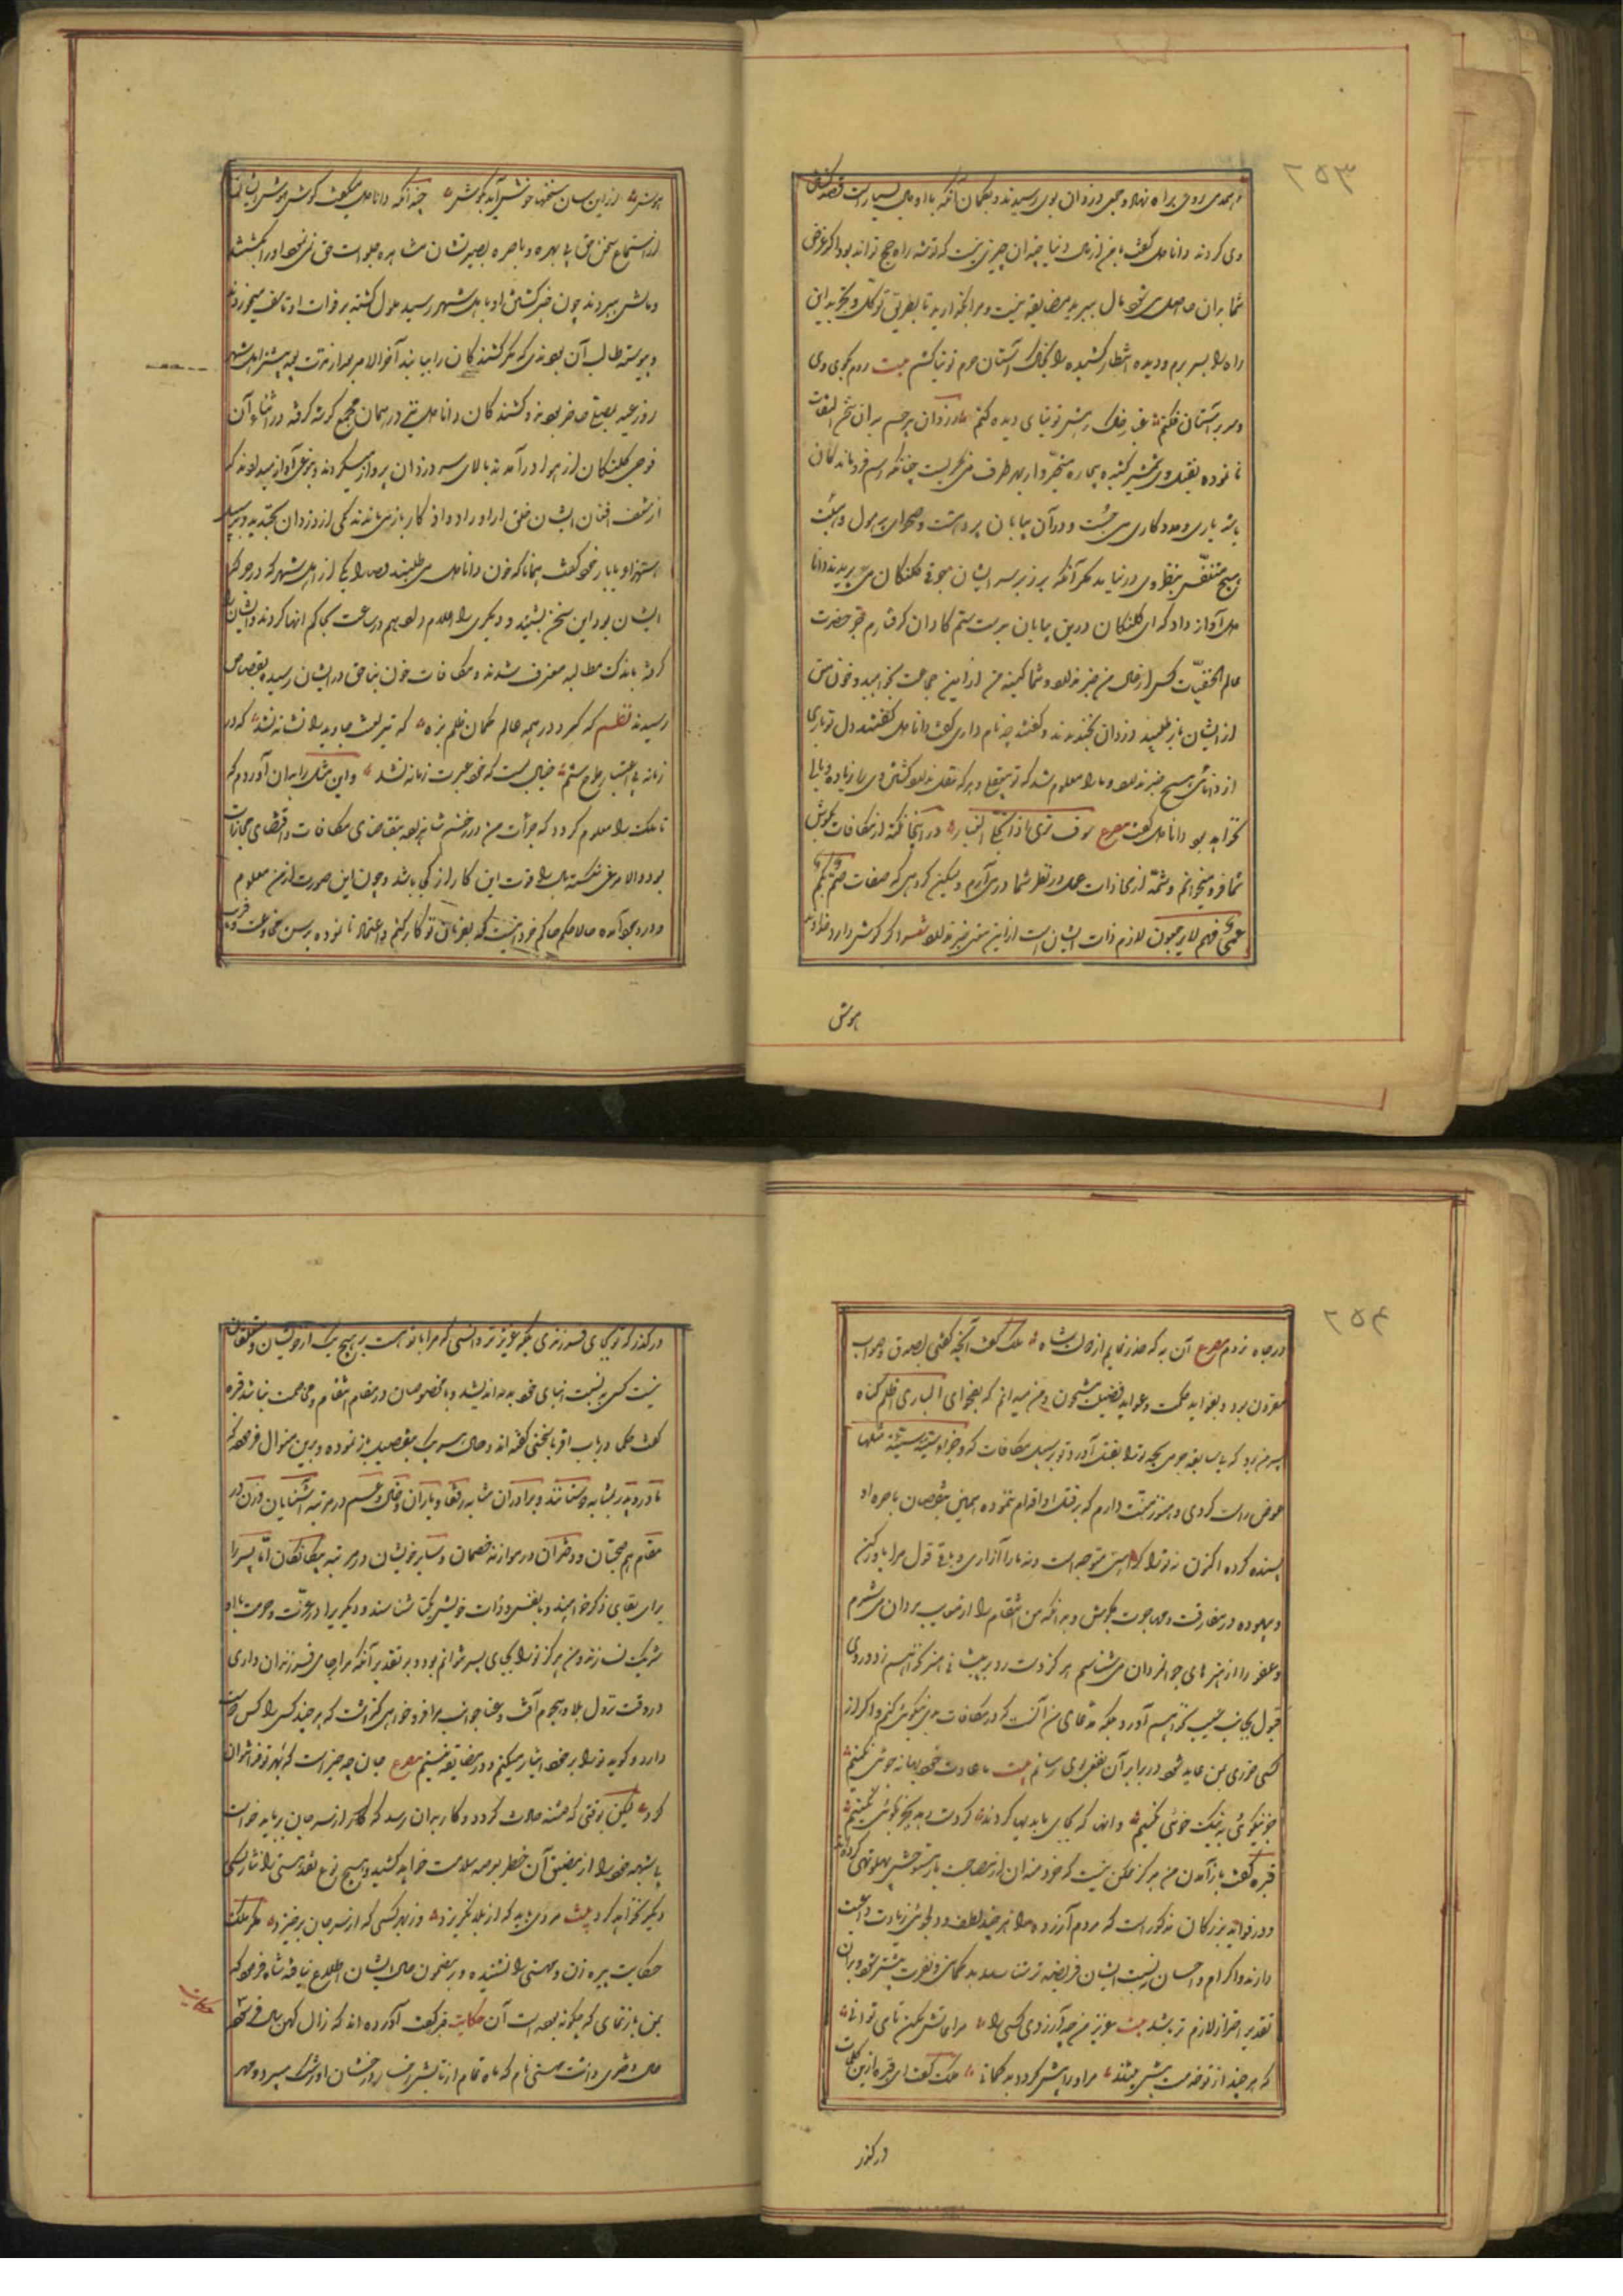 ۲۵۳
و همدمی روی براه نهاد و جمعی دزدان بوی رسیدند و بگمان آنکه با او مال بسیار است قصد کشتن
وی کردند دانا دل گفت با من از مال دنیا چندان چیزی نیست که توشه راه حج تواند بود اگر غرض
شما بدان حاصل می‌شود مال ببرید مضایقه نیست و مرا بگذارید تا بطریق توکل و تجرید این
راه را بسر برم و دیده انتظار کشیده را بخاک آستان حرم توتیا کشم بیت روم بکوی وی
و سر بر آستان فکنم غبار خاک رهش توتیای دیده کنم دزدان بیرحم بدان سخن التفات
نانموده بقتل وی شمشیر کشیدند بیچاره متحیروار بهر طرف می‌نگریست چنانکه رسم فروماندگان
باشد یاری و مددکاری می‌جست و در آن بیابان پر دهشت و صحرای پر هول و هیبت
هیچ متنفس بنظر وی در نیامد مگر آنکه بر زبر سر ایشان جوقی کلنگان می‌پریدند دانا
دل آواز داد که ای کلنگان درین بیابان بدست ستمکاران گرفتارم و جز حضرت
عالم الخفیات کس از حال من خبر ندارد و شما کینه من از این جماعت بخواهید و خون من
از ایشان باز طلبید دزدان بخندیدند و گفتند چه نام داری گفت دانا دل گفتند دل تو باری
از دانائی هیچ خبر ندارد و ما را معلوم شد که تو بیعقلی و هر که عقل ندارد کشتن وی را زیاده وبالی
نخواهد بود دانا دل گفت مصرع سوف تری اذا انجلی الغبار در اینجا نکته از مکافات بگوش
شما فرو میخوانم و شمه از مجازات عمل در نظر شما در می‌آرم ولیکن گروهی که صفات صم بکم
عمی فهم لا یرجعون لازم ذات ایشان است از این معنی خبر ندارند اگر گوش دارد خداوند
هوش
هوش از این سان سخنها خوش آید بگوش چندانکه دانا دل میگفت گوش هوش ایشان
از استماع سخن حق بی بهره و باصره بصیرتشان مشاهده جلوات حق نمی‌نمود او را بکشتند
و مالش ببردند چون خبر کشتن او باهل شهر رسید ملول گشته بر فوات او تاسف میخوردند
و پیوسته طالب آن بودند که مگر کشندگان را بیابند آخر الامر بعد از مدت بیشتر اهل شهر
روز عید بمصلی حاضر بودند و کشندگان دانا دل نیز در همان مجمع گوشه گرفته در اثناء آن
فوجی کلنگان از هوا در آمدند بالای سر دزدان پرواز میکردند و بنوعی آواز میدادند که
از شغف افغان ایشان خلق از اوراد و اذکار باز می‌ماندند یکی از دزدان بخندید و بر سبیل
استهزا با یار خود گفت همانا که خون دانا دل می‌طلبند قضا را یکی از اهل شهر که در جوار
ایشان بود این سخن بشنید و دیگری را اعلام داد هم در ساعت بحاکم انها کردند و ایشان را
گرفته باندک مطالبه معترف شدند و مکافات خون بناحق در ایشان رسیده بقصاص
رسیدند نظم که کرد در همه عالم کمان ظلم بزه که تیر لعنت جاوید را نشانه نشد که در
زمانه بی اعتبار طرح ستم خیالی بست که خود عبرت زمانه نشد و این مثل را بدان آوردم که
تا ملک را معلوم گردد که جرأت من در زخم شاهزاده بتقاضای مکافات و اقتضای مجازات
بود و الا مرغی شکسته بال را قوت این کار از کجا باشد و چون این صورت از من معلوم
و در وجود آمده حالا حکم حاکم خرد اینست که بفرمان تو کار نکنم و اعتماد نانموده برسن مخادعت و فریب
۲۵۴
در چاه نروم مصرع آن به که حذر نمایم از خدمت شاه ملک گفت آنچه گفتی بصدق و صواب
مقرون بود و بفواید حکمت و عواید فضیلت مشحون و من میدانم که بفحوای البادی اظلم گناه
پسر من بود که بی سابقه جرمی بچه ترا بقتل آورد و تو بر سبیل مکافات که و جزاء سیئة سیئة مثلها
عوض راست کردی و هنوز منت دارم که بر قتل او اقدام ننموده همین بنقصان باصره او
بسنده کرده اکنون نه ترا کراهیتی متوجه است و نه ما را آزاری باقی قول مرا باور کن
و بیهوده در مفارقت و مهاجرت مکوش و بدانکه من انتقام را از معایب مردان می‌شمرم
و عفو را از هنرهای جوانمردان می‌شناسم هرگز دست رد بر پیشانی هنر نخواهم زد و روی
قبول بجانب عیب نخواهم آورد بلکه مدعای من آنست که در مکافات بدی نیکوئی کنم و اگر از
کسی ضرری بمن عاید شود در برابر آن نفعی رسانم بیت ما عادت خود بهانه جوئی نکنیم
جز نیکوئی و نیک خوئی نکنیم و آنها که بجای ما بدیها کردند گر دست دهد بجز نکوئی نکنیم
قبره گفت باز آمدن من هرگز ممکن نیست که خردمندان از مصاحبت یار مستوحش پهلو تهی کرده‌اند
و در فواید بزرگان مذکور است که مردم آزرده را هر چند لطف و دلجوئی زیادت واجب
دارند و اکرام و احسان نسبت ایشان فریضه تر شناسند بدگمانی و نفرت بیشتر شود و بر آن
تقدیر احتراز لازم تر باشد بیت عزیز من چو آزردی کسی را مراعاتش مکن تا می توانی
که هر چند از تو خدمت بیش بیند مر او را بیش گردد بدگمانی ملک گفت ای قبره ازین کلمات
در گذر
در گذر که تو بجای فرزندی بلکه عزیزتر و انسی که مرا با تو هست بر هیچ یک از خویشان و متعلقان
نیست کسی به نسبت ابنای خود بد نه اندیشد و با مخصوصان در مقام انتقام و مخاصمت نباشد قبره
گفت حکما در باب اقربا سخنی گفته اند و حال هر یک بتفصیل باز نموده و برین منوال فرموده که
مادر و پدر بمثابه دوستانند و برادران مشابه رفقا و یاران و خال و عم در مرتبه آشنایان و زن در
مقام هم صحبتان و دختران در موازنه خصمان و سایر خویشان در مرتبه بیگانگان اما پسر را
برای بقای ذکر خواهند و با نفس و ذات خویش یکتا شناسند و دیگریرا در عزت و حرمت با او
شریک نسازند و من هرگز ترا بجای پسر نتوانم بود و بر تقدیر آنکه مرا بجای فرزندان داری
در وقت نزول بلا و هجوم آفت و عنا جوانب مرا فرو خواهی گذاشت که هر چند کسی را کس دوست
دارد و گوید ترا بر خود ایثار میکنم و در مضایقه نیستم مصرع جان چه چیز است که بهر تو فدا نتوان
کرد لیکن بوقتی که فتنه حادث گردد و کار بدان رسد که از سر جان بباید خواست
بی شبهه خود را از مضیق آن خطر بعرصه سلامت خواهد کشید و بهیچ نوع نقد هستی را نثار کسی
دیگر نخواهد کرد بیت مردی باید که از بلا نگریزد وز بهر کسی که از سر جان برخیزد مگر ملک
حکایت پیره زن و مهستی را نشنیده و بر مضمون حال ایشان اطلاع نیافته شاه فرمود که
بمن باز نمای که چگونه بوده است آن حکایت قبره گفت آورده اند که زال کهن سال فرتوت
حکایت
حال دختری داشت مهستی نام که ماه تمام از تابش رخسار درخشان او رشک میبرد و مهر